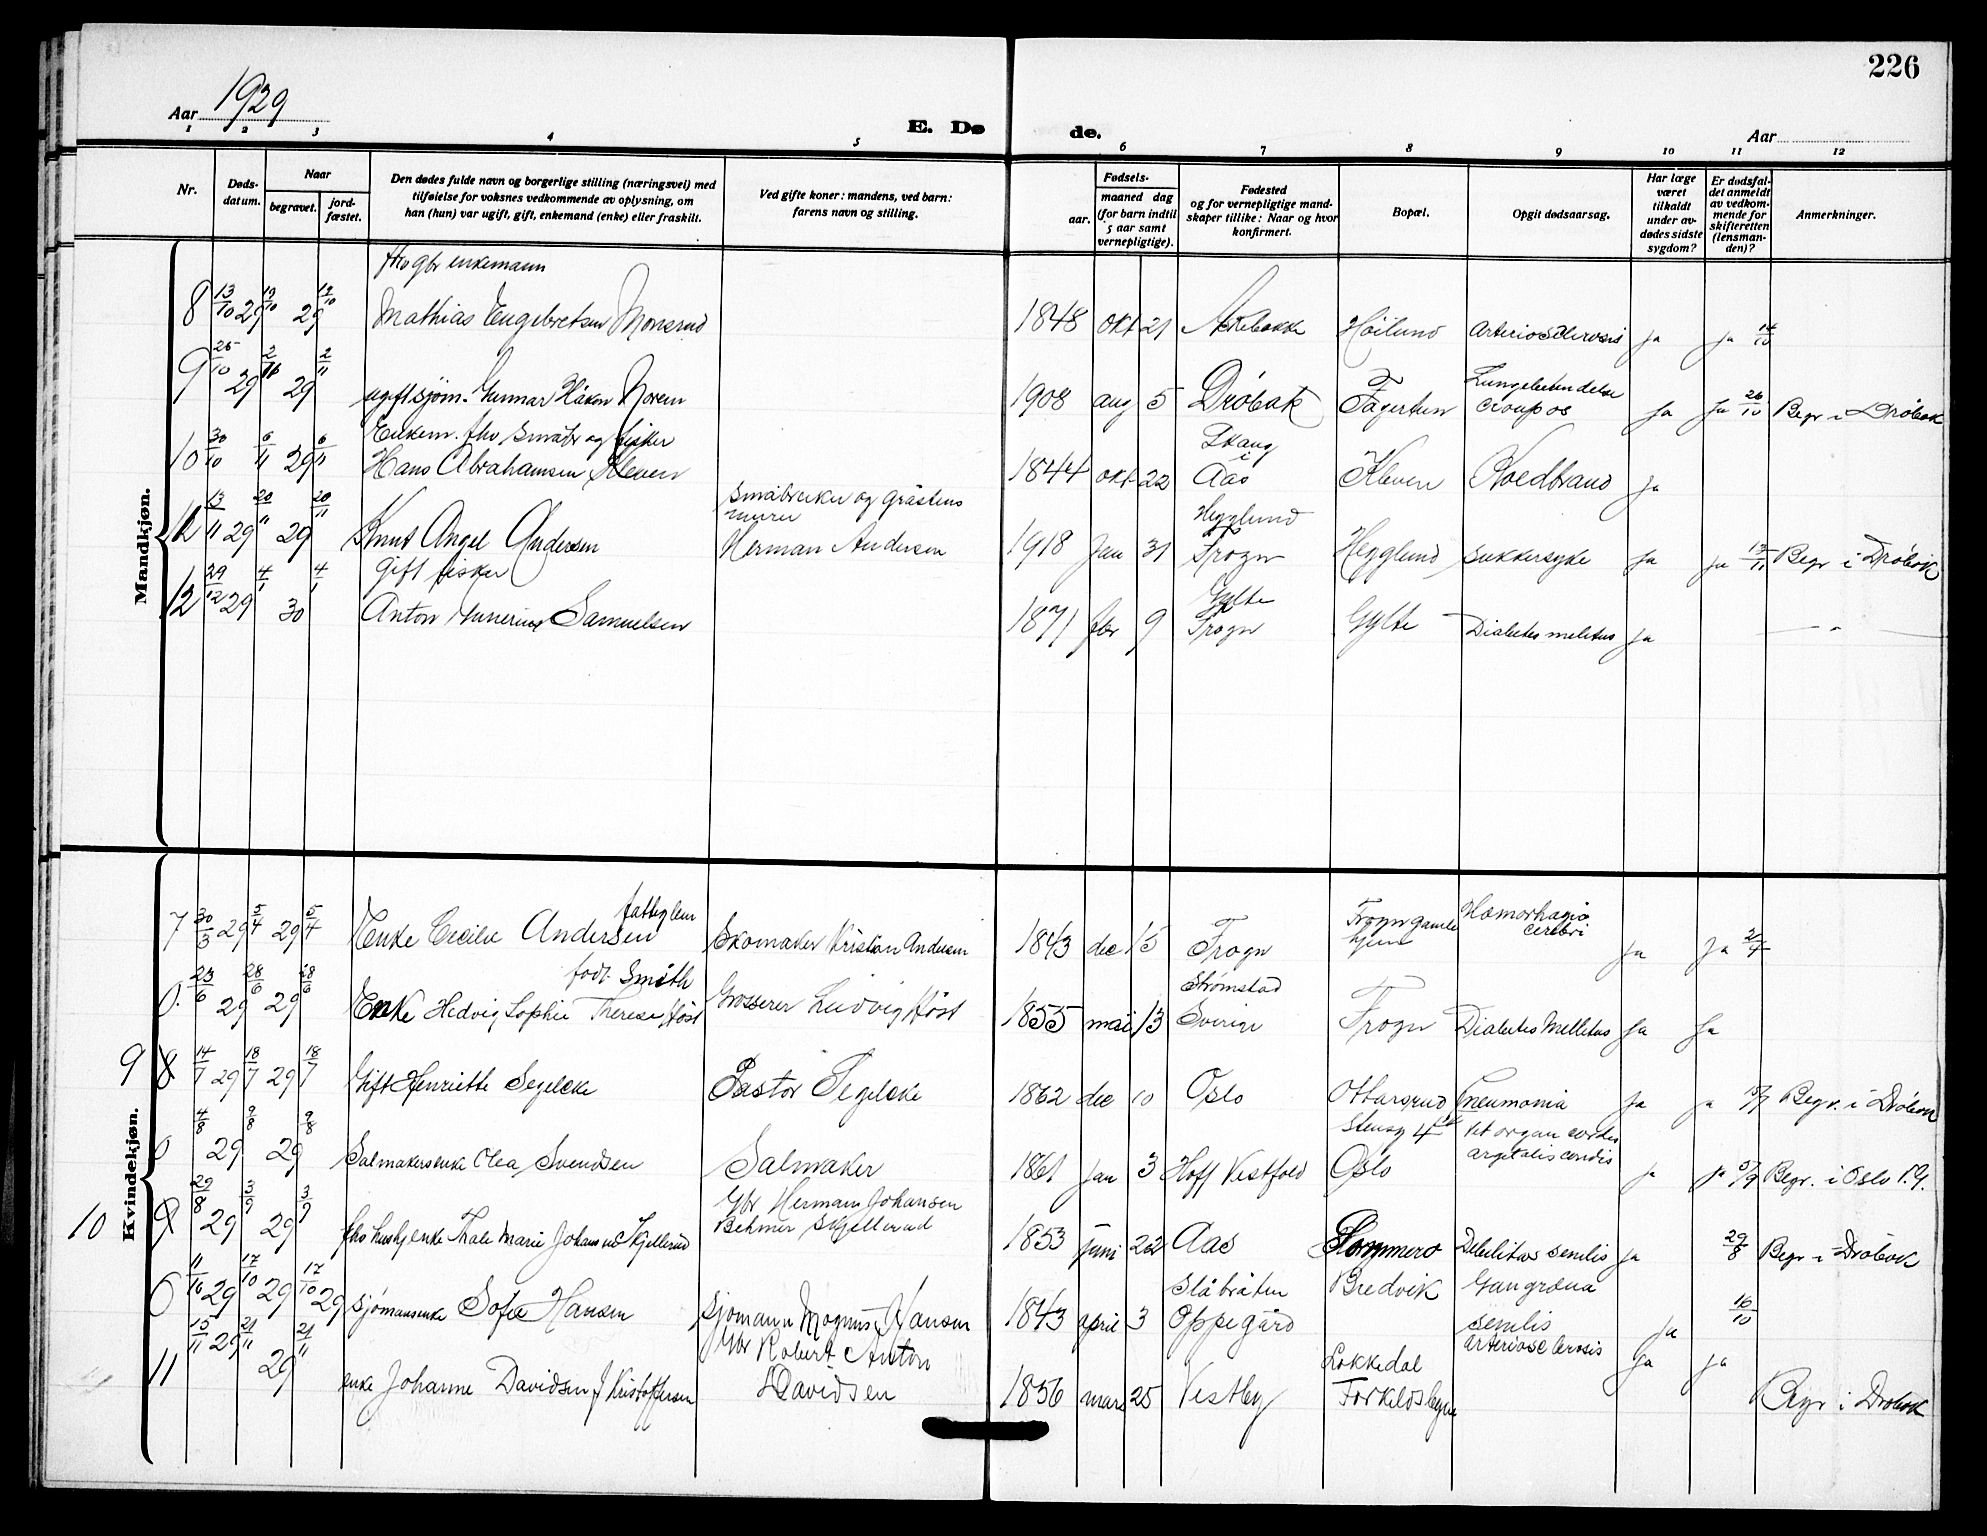 226
Aar 1929
E. Dø de.
Aar
1 2 3 4 5 6 7 8 9 10 11 12
Nr.
Døds-
datum.
Naar
begravet.
jord-
fæstet.
Den dødes fulde navn og borgerlige stilling (næringsvei) med
tilføielse for voksnes vedkommende av oplysning, om
han (hun) var ugift, gift, enkemand (enke) eller fraskilt.
Ved gifte koner: mandens, ved barn:
farens navn og stilling.
Fødsels-
aar.
maaned dag
(for barn indtil
5 aar samt
vernepligtige).
Fødested
og for vernepligtige mand-
skaper tillike: Naar og hvor
konfirmert.
Bopæl.
Opgit dødsaarsag.
Har læge
været
tilkaldt
under av-
dødes sidste
sygdom?
Er dødsfal-
det anmeldt
av vedkom-
mende for
skifteretten
(lensman-
den)?
Anmerkninger.
Mandkjøn.
fho gbr enkemann
8 13/10 29 19/10 29 19/10 Mathias Engebretsen Monsrud 1848 okt 21 Høilund Arteriosclerosis Ja Ja 14/10
9 25/10 29 2/11 29 2/11 ugift sjøm. Gunnar Håkon Noren 1908 aug 5 Drøbak Fagertun Lungebetendelse
croupøs Ja Ja 26/10 Begr i Drøbak
Enkem. fho, småbr og fisker
10 30/10 6/11 29 6/11 Hans Abrahamsen Kleven 1844 okt 22 Skaug
i
Aas Kleven Koldbrand Ja
12 13/11 29 20/11 29 20/11 Knut Angel Andersen småbruker og gråstens
murer
Herman Andersen 1918 Jan 31 Hegglund
Frogn Hegglund sukkersyke Ja Ja 15/11 Begr i Drøbak
gift fisker
12 29/12 29 4/1 30 4/1 Anton Gunerius Samuelsen 1871 febr 9 Gylte
Frogn Gylte Diabetes melitus Ja — " —
Kvindekjøn.
7 30/3 29 5/4 29 5/4 Enke Cecilie Andersen fattiglem Skomaker Kristian Andersen 1843 dec 15 Frogn Frogn gamle
hjem Hæmorhagia
cerebri Ja Ja 2/4
født Smith
0. 23/6 29 28/6 29 28/6 Enke Hedvig Sophie Therese Høst Grosserer Ludvig Høst 1855 mai 13 Strømstad
Sverige Frogn Diabetes Mellitus Ja Ja
9 8 14/7 29 18/7 29 18/7 Gift Henriette Segelcke Pastor Segelcke 1862 dec 10 Oslo Ottarsrud Pneumonia Ja Ja 15/7 Begr. i Drøbak
0 4/8 29 9/8 29 9/8 Salmakerenke Olea Svendsen Salmaker 1861 Jan 3 Hoff Vestfold Stensg 4
Oslo Vit organ cordis Ja Ja 5/9 Begr. i Oslo V.G.
10 9 29/8 29 3/9 29 3/9 fho husbj enke Thale Marie Johansens Skjellerud Gbr Herman Johansen
Behmer Skjellerud 1853 Juni 22 Aas Sommero Debilitas senilis Ja 29/8 Begr i Drøbak
0 11/10 29 17/10 29 17/10 29 sjømansenke Sofie Hansen sjømann Magnus Hansen 1843 april 3 Slåbråten
Oppegård Bredvik Gangræna
senilis Ja 16/10
11 15/11 29 21/11 29 21/11 enke Johanne Davidsen f Kristoffersen Gbr Robert Anton
Davidsen 1856 mars 25 Vestby Lokkedal
Torkildsbyen arteriosclerosis Ja Ja Begr i Drøbak